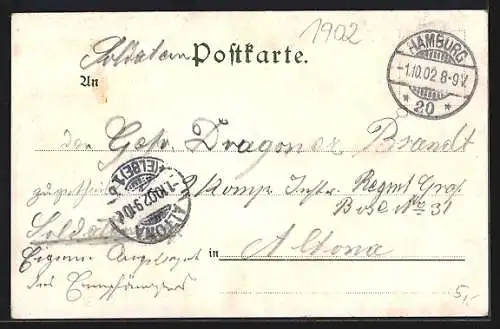 1902
Soldaten Postkarte.
An
HAMBURG
-1.10.02 8-9V.
* 20 *
den Gefr. Dragoner Brandt
zugetheilt 2 Komp. Inftr. Regmt Graf
Bose No 31
Soldaten
ALTONA (ELBE) 1
-1.10.02 9-10
in Altona
Eigene Angelegenheit
des Empfängers
5,-